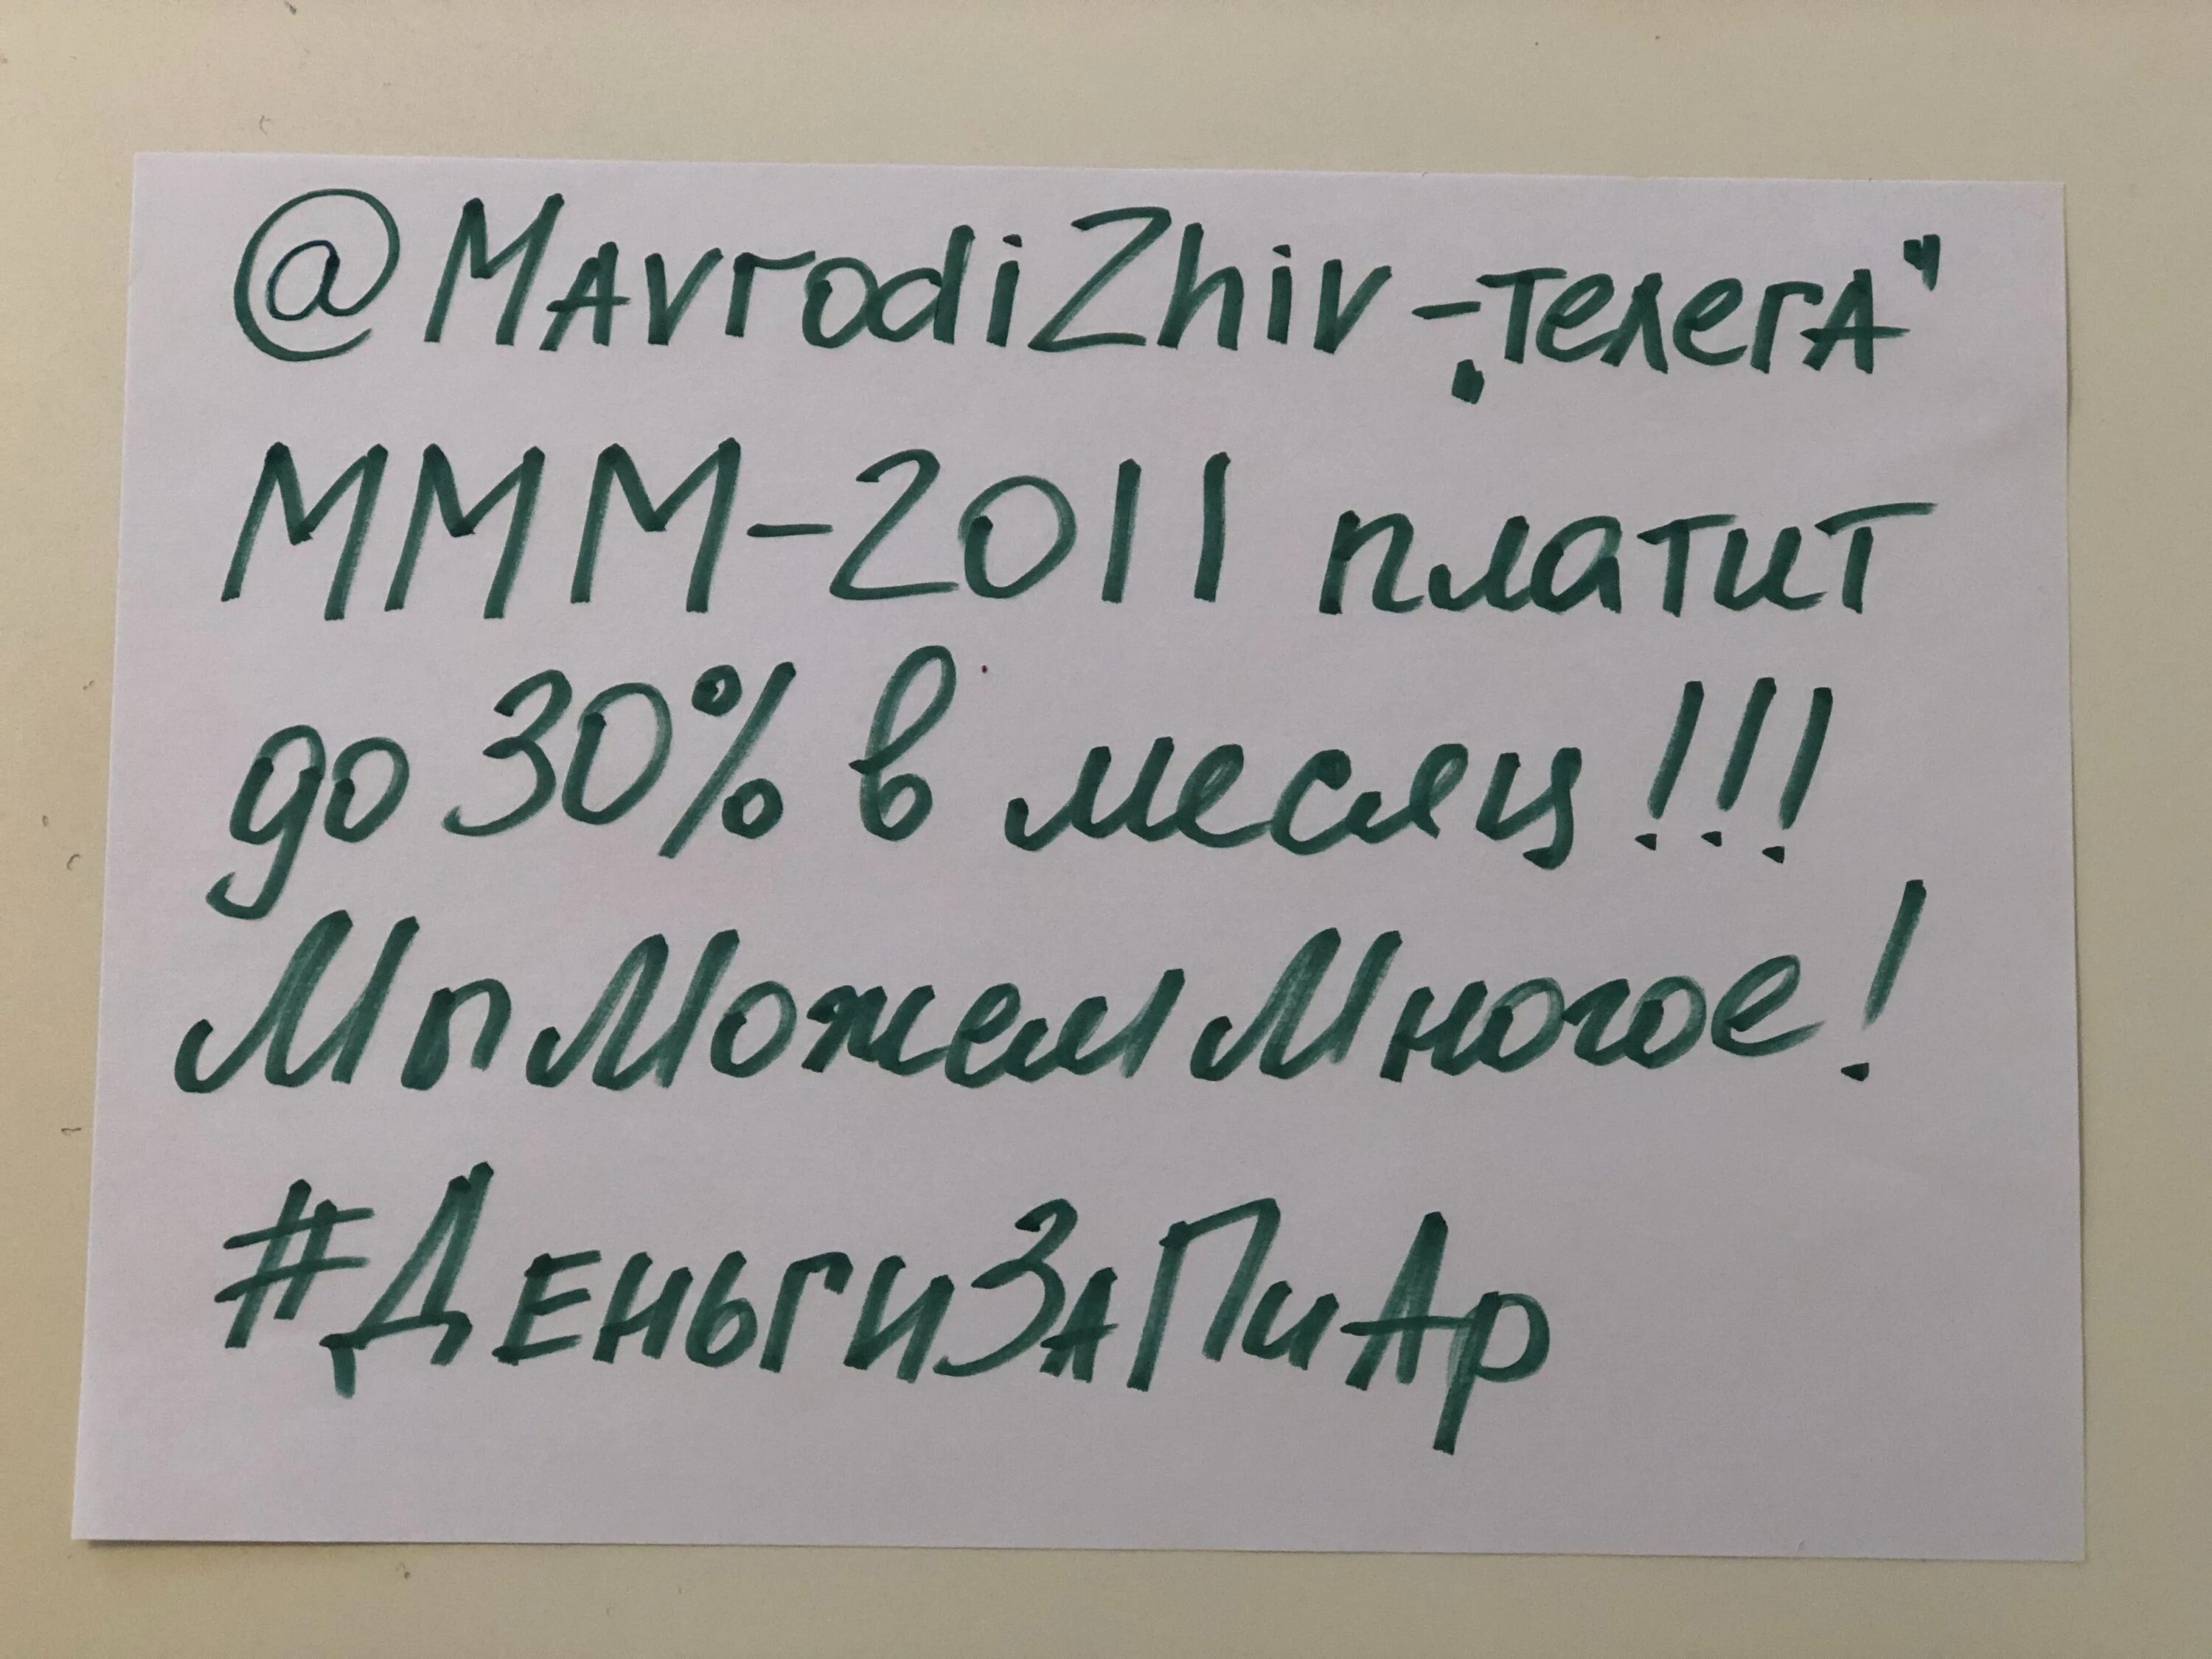 @MavrodiZhiv - „телега“
МММ-2011 платит
до 30% в месяц!!!
Мы Можем Многое!
#ДеньгиЗаПиАр